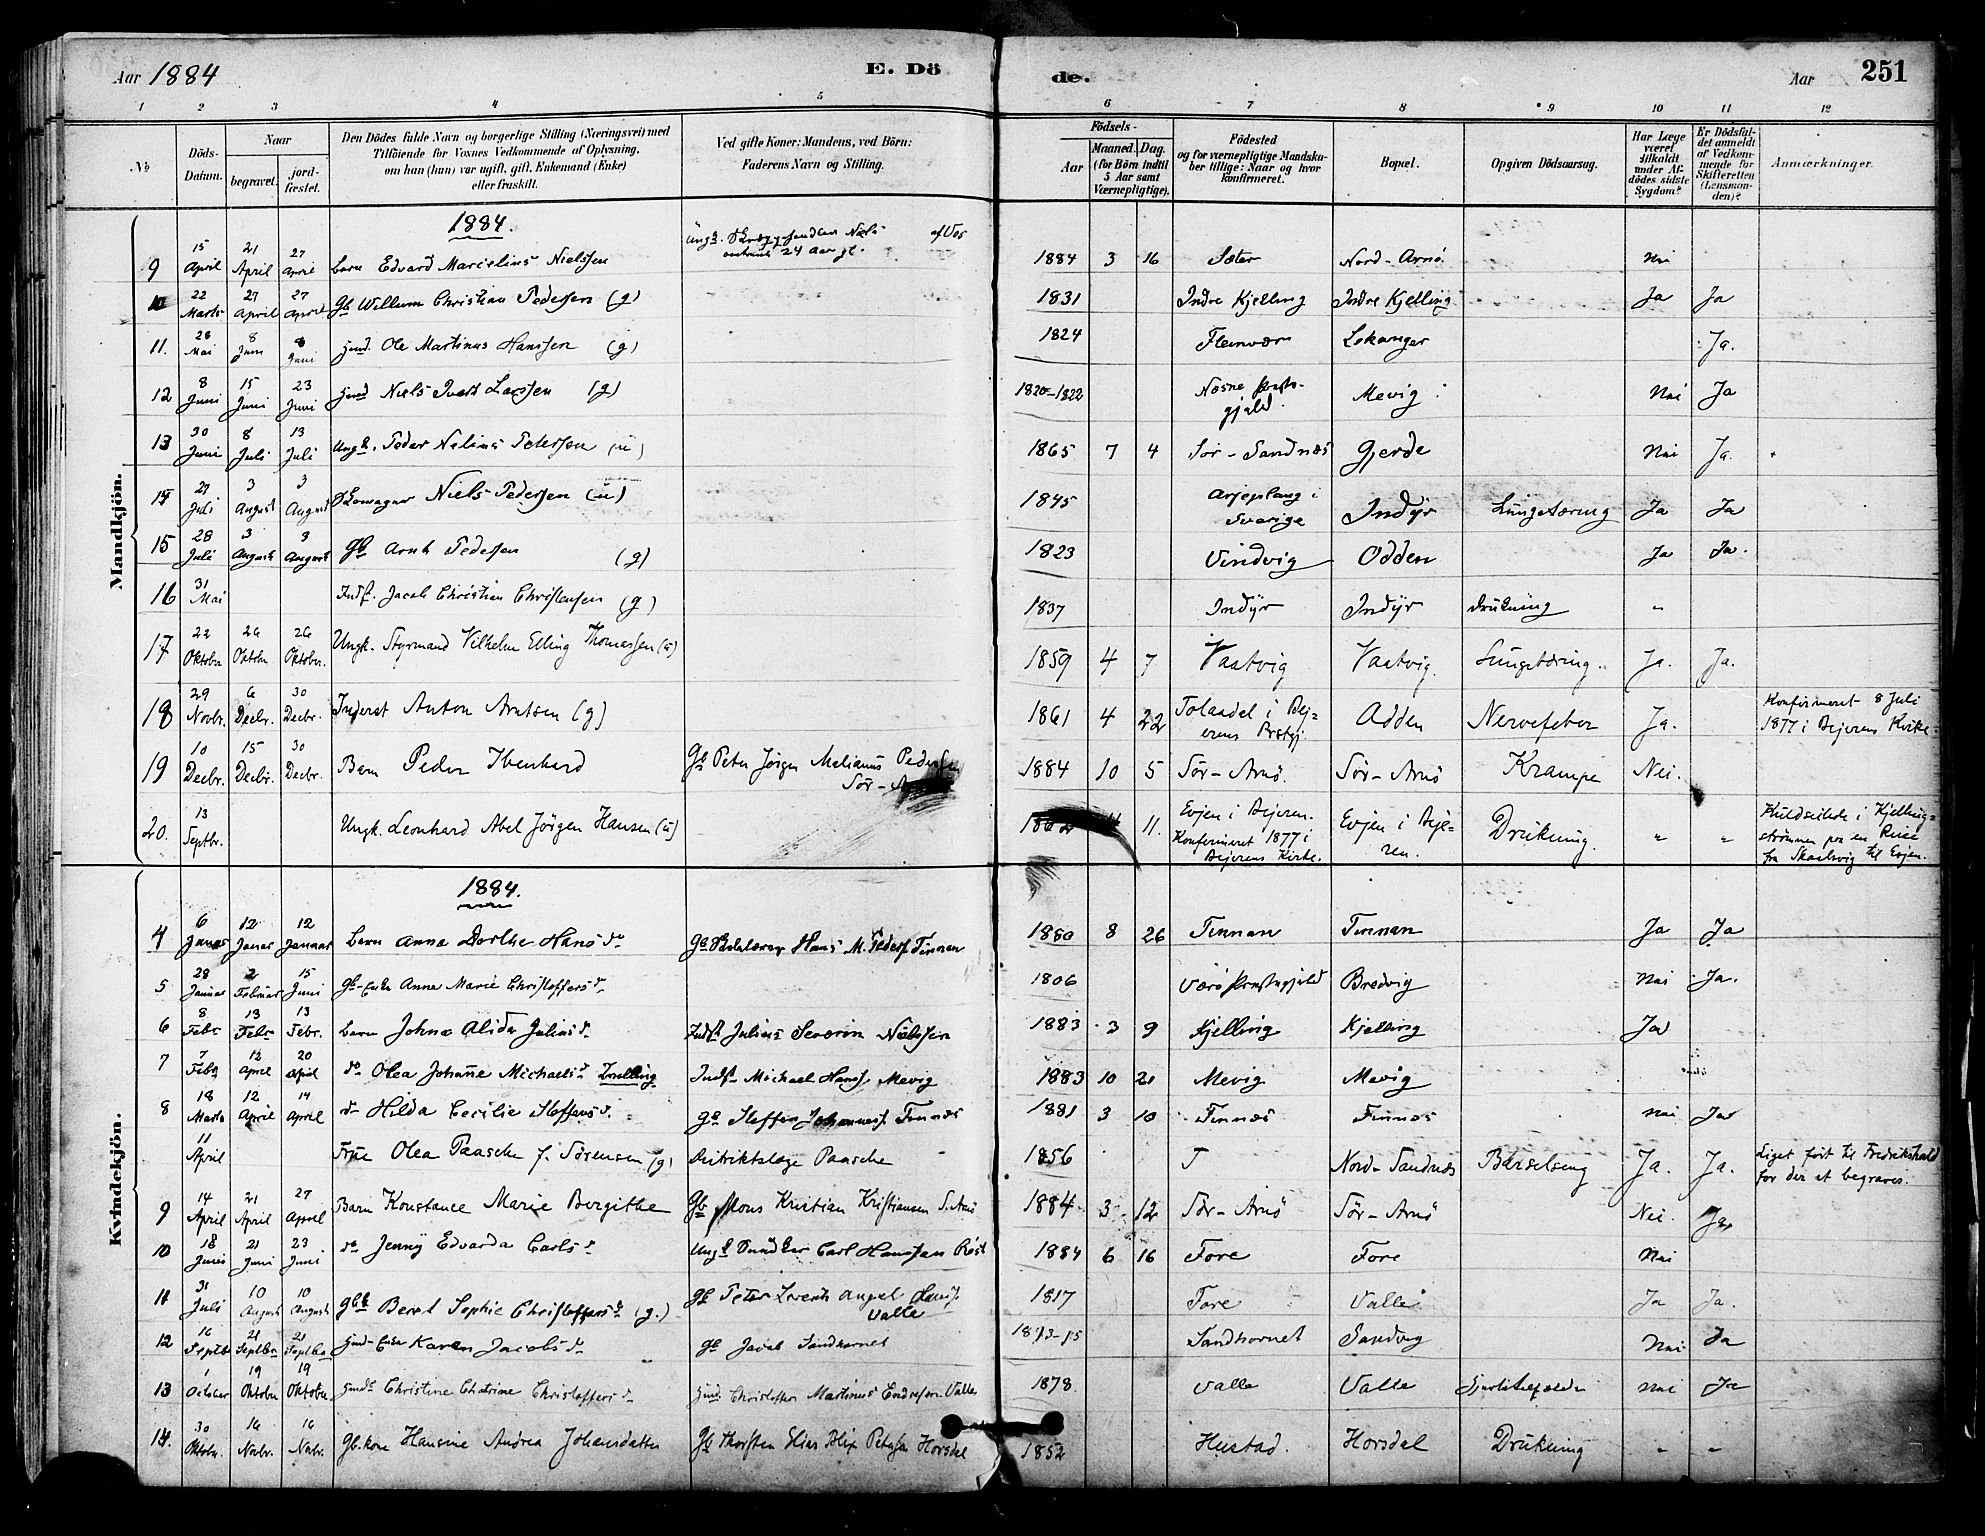 Aar 1884
E. Dö
de.
Aar
251
1 2 3 4 5 6 7 8 9 10 11 12
No
Döds-Datum.
Naar
begravet.
jord-fæstet.
Den Dödes fulde Navn og borgerlige Stilling (Næringsvei) med
Tilföiende for Voxnes Vedkommende af Oplysning,
om han (hun) var ugift, gift, Enkemand (Enke)
eller fraskilt.
Ved gifte Koner: Mandens, ved Börn:
Faderens Navn og Stilling.
Födsels-
Aar
Maaned. Dag.
(for Börn indtil
5 Aar samt
Værnepligtige).
Födested
og for værnepligtige Mandska-
ber tillige: Naar og hvor
konfirmeret.
Bopæl.
Opgiven Dödsaarsag.
Har Læge
været
tilkaldt
under Af-
dödes sidste
Sygdom?
Er Dödsfal-
det anmeldt
af Vedkom-
mende for
Skifteretten
(Lensman-
den)?
Anmærkninger.
Mandkjön.
1884.
9 15 April 21 April 27 April Barn Edvard Marcelius Nielssen 24 Aar gl. 1884 3 16 Sæter Nord-Arnö Nei
10 22 Marts 27 April 27 April Gb Willum Christian Pedersen (g) 1831 Indre Kjelling Indre Kjelling Ja Ja
11. 28 Mai 8 Juni 8 Juni Ole Martinus Hanssen (g) 1824 Fleinvær Lekanger Ja.
12 8 Juni 15 Juni 23 Juni Niels Ivart Larssen (g) 1820-1822 Næsne Præste-
gjeld. Mevig Nei Ja
13 30 Juni 8 Juli 13 Juli Ungk. Peder Nelius Petersen (u) 1865 7 4 Sör-Sandnæs Gjerde Nei Ja.
14 27 Juli 3 August 3 August Skomager Niels Pedersen (u) 1845 Arjeplaug i
Sverige Indyr Lungetæring Ja Ja
15 28 Juli 3 August 3 August Gb Arnt Pedersen (g) 1823 Vindvig Odden Ja Ja.
16 31 Mai Indst. Jacob Christian Christensen (g) 1837 Indyr Indyr Drukning "
17 22 Oktober 26 Oktbr 26 Oktober. Ungk. Styrmand Vilhelm Elling Thomassen (u) 1859 4 7 Vaatvig Vaatvig. Lungetæring. Ja. Ja.
18 29 Novbr. 6 Decbr. 30 Decbr. Inderst Anton Arntsen (g) 1861 4 22 Tolaadal i Bej-
erens Prstgj. Odden Nervefeber Ja. Konfirmeret 8 Juli
1877 i Bejerens Kirke.
19 10 Decbr. 15 Decbr. 30 Decbr. Barn Peder Ibenhard Gb Peter Jörgen Melianus Pedersen
Sör-Arnö 1884 10 5 Sör-Arnö. Sör-Arnö Krampe Nei.
20. 13 Septbr. Ungk. Leonhard Abel Jörgen Hansen (u) 11. Evjen i Bejeren.
Konfirmeret 1877 i
Bejerens Kirke. Evjen i Beje-
ren. Drukning. " " Kuldseilede i Kjelling-
strömmen paa en Reise
fra Skaalsvig til Evjen.
Kvindekjön.
1884.
4 6 Januar 12 Januar 12 Januar Barn Anna Dorthe Hansdr Hans M. Peders. Finnan 1880 8 26 Finnan Finnan Ja Ja
5 28 Januar 2 Februar 15 Juni Gb-Enke Anne Marie Christoffersdr 1806 Værö Præstegjeld Bredvig Nei Ja.
6 8 Febr 13 Febr 13 Febr. Barn Johna Alida Juliusdr Indst Julius Severin Nielssen 1883 3 9 Kjelling Kjelling Ja
7 7 Febr 12 April 20 April do Olea Johanne Michaelsdr Tvilling Indst Michael Hanss. Mevig 1883 10 21 Mevig Mevig
8 18 Marts 12 April 14 April do Hilda Cecilie Steffensdr. Gb Steffen Johanness. Finnæs 1881 3 10 Finnæs Finnæs Nei Ja
11 April Frue Olea Paasche f. Sörensen (g) Distriktslæge Paasche 1856 Nord-Sandnæs Barselseng Ja. Ja. Liget fört til Fredrikshald
for der at begraves.
9 14 April 21 April 27 April Barn Konstance Marie Bergithe Gb Mons Kristian Kristiansen S. Arnö 1884 3 12 Sör-Arnö Sör-Arnö Nei. Ja.
10 18 Juni 21 Juni 23 Juni do Jenny Edvarda Carlsdr Ungk Carl Hanssen 1884 6 16 Fore Fore Nei
11 31 Juli 10 August 10 August Beret Sophie Christoffersdr (g.) Gb Peter Lorents Angel
Valle 1817 Fore Valle Ja Ja.
12 16 Septbr 21 Septbr 21 Septbr Karen Jacobsdr Gb Jacob Sandhornet Sandhornet Sandvig Nei Ja
13 1 October 19 Oktober 19 Oktober Christine Chatrine Christoffersdr Christoffer Martinus Endresen Valle 1878 Valle Valle Nei Ja
14. 30 Oktbr. 16 Novbr. 16 Novbr. Gb. kone Hansine Andrea Johansdatter Gb Thorsten Elias Blix Petersen Horsdal 1852 Hustad. Horsdal Drukning " "